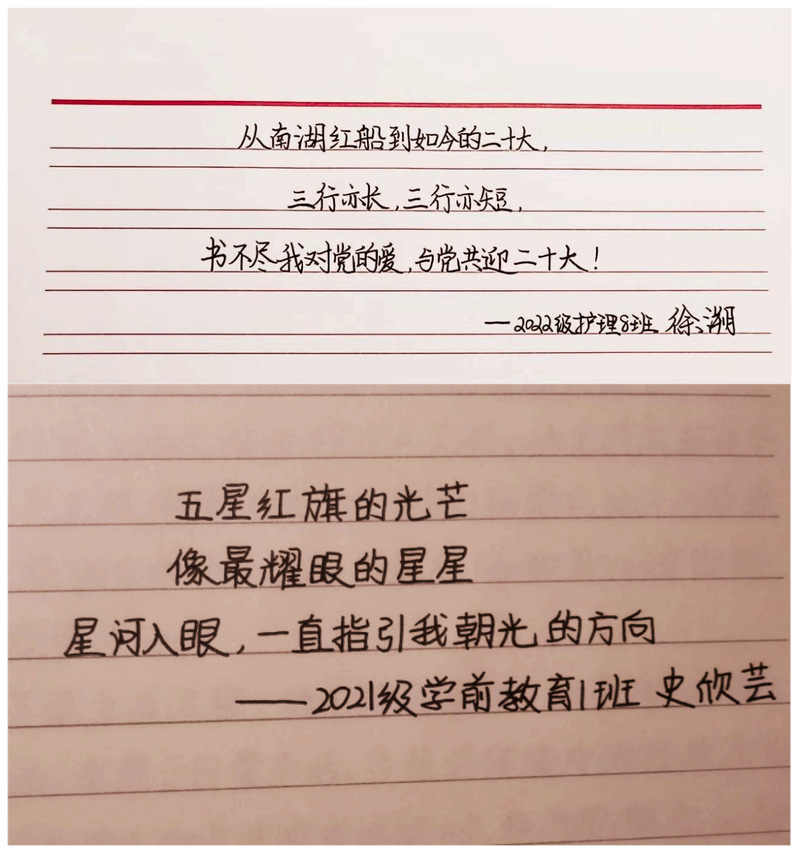 从南湖红船到如今的二十大,
三行亦长,三行亦短,
书不尽我对党的爱,与党共迎二十大!
—2022级护理8班 徐湖
五星红旗的光芒
像最耀眼的星星
星河入眼,一直指引我朝光的方向
——2021级学前教育1班 史欣芸